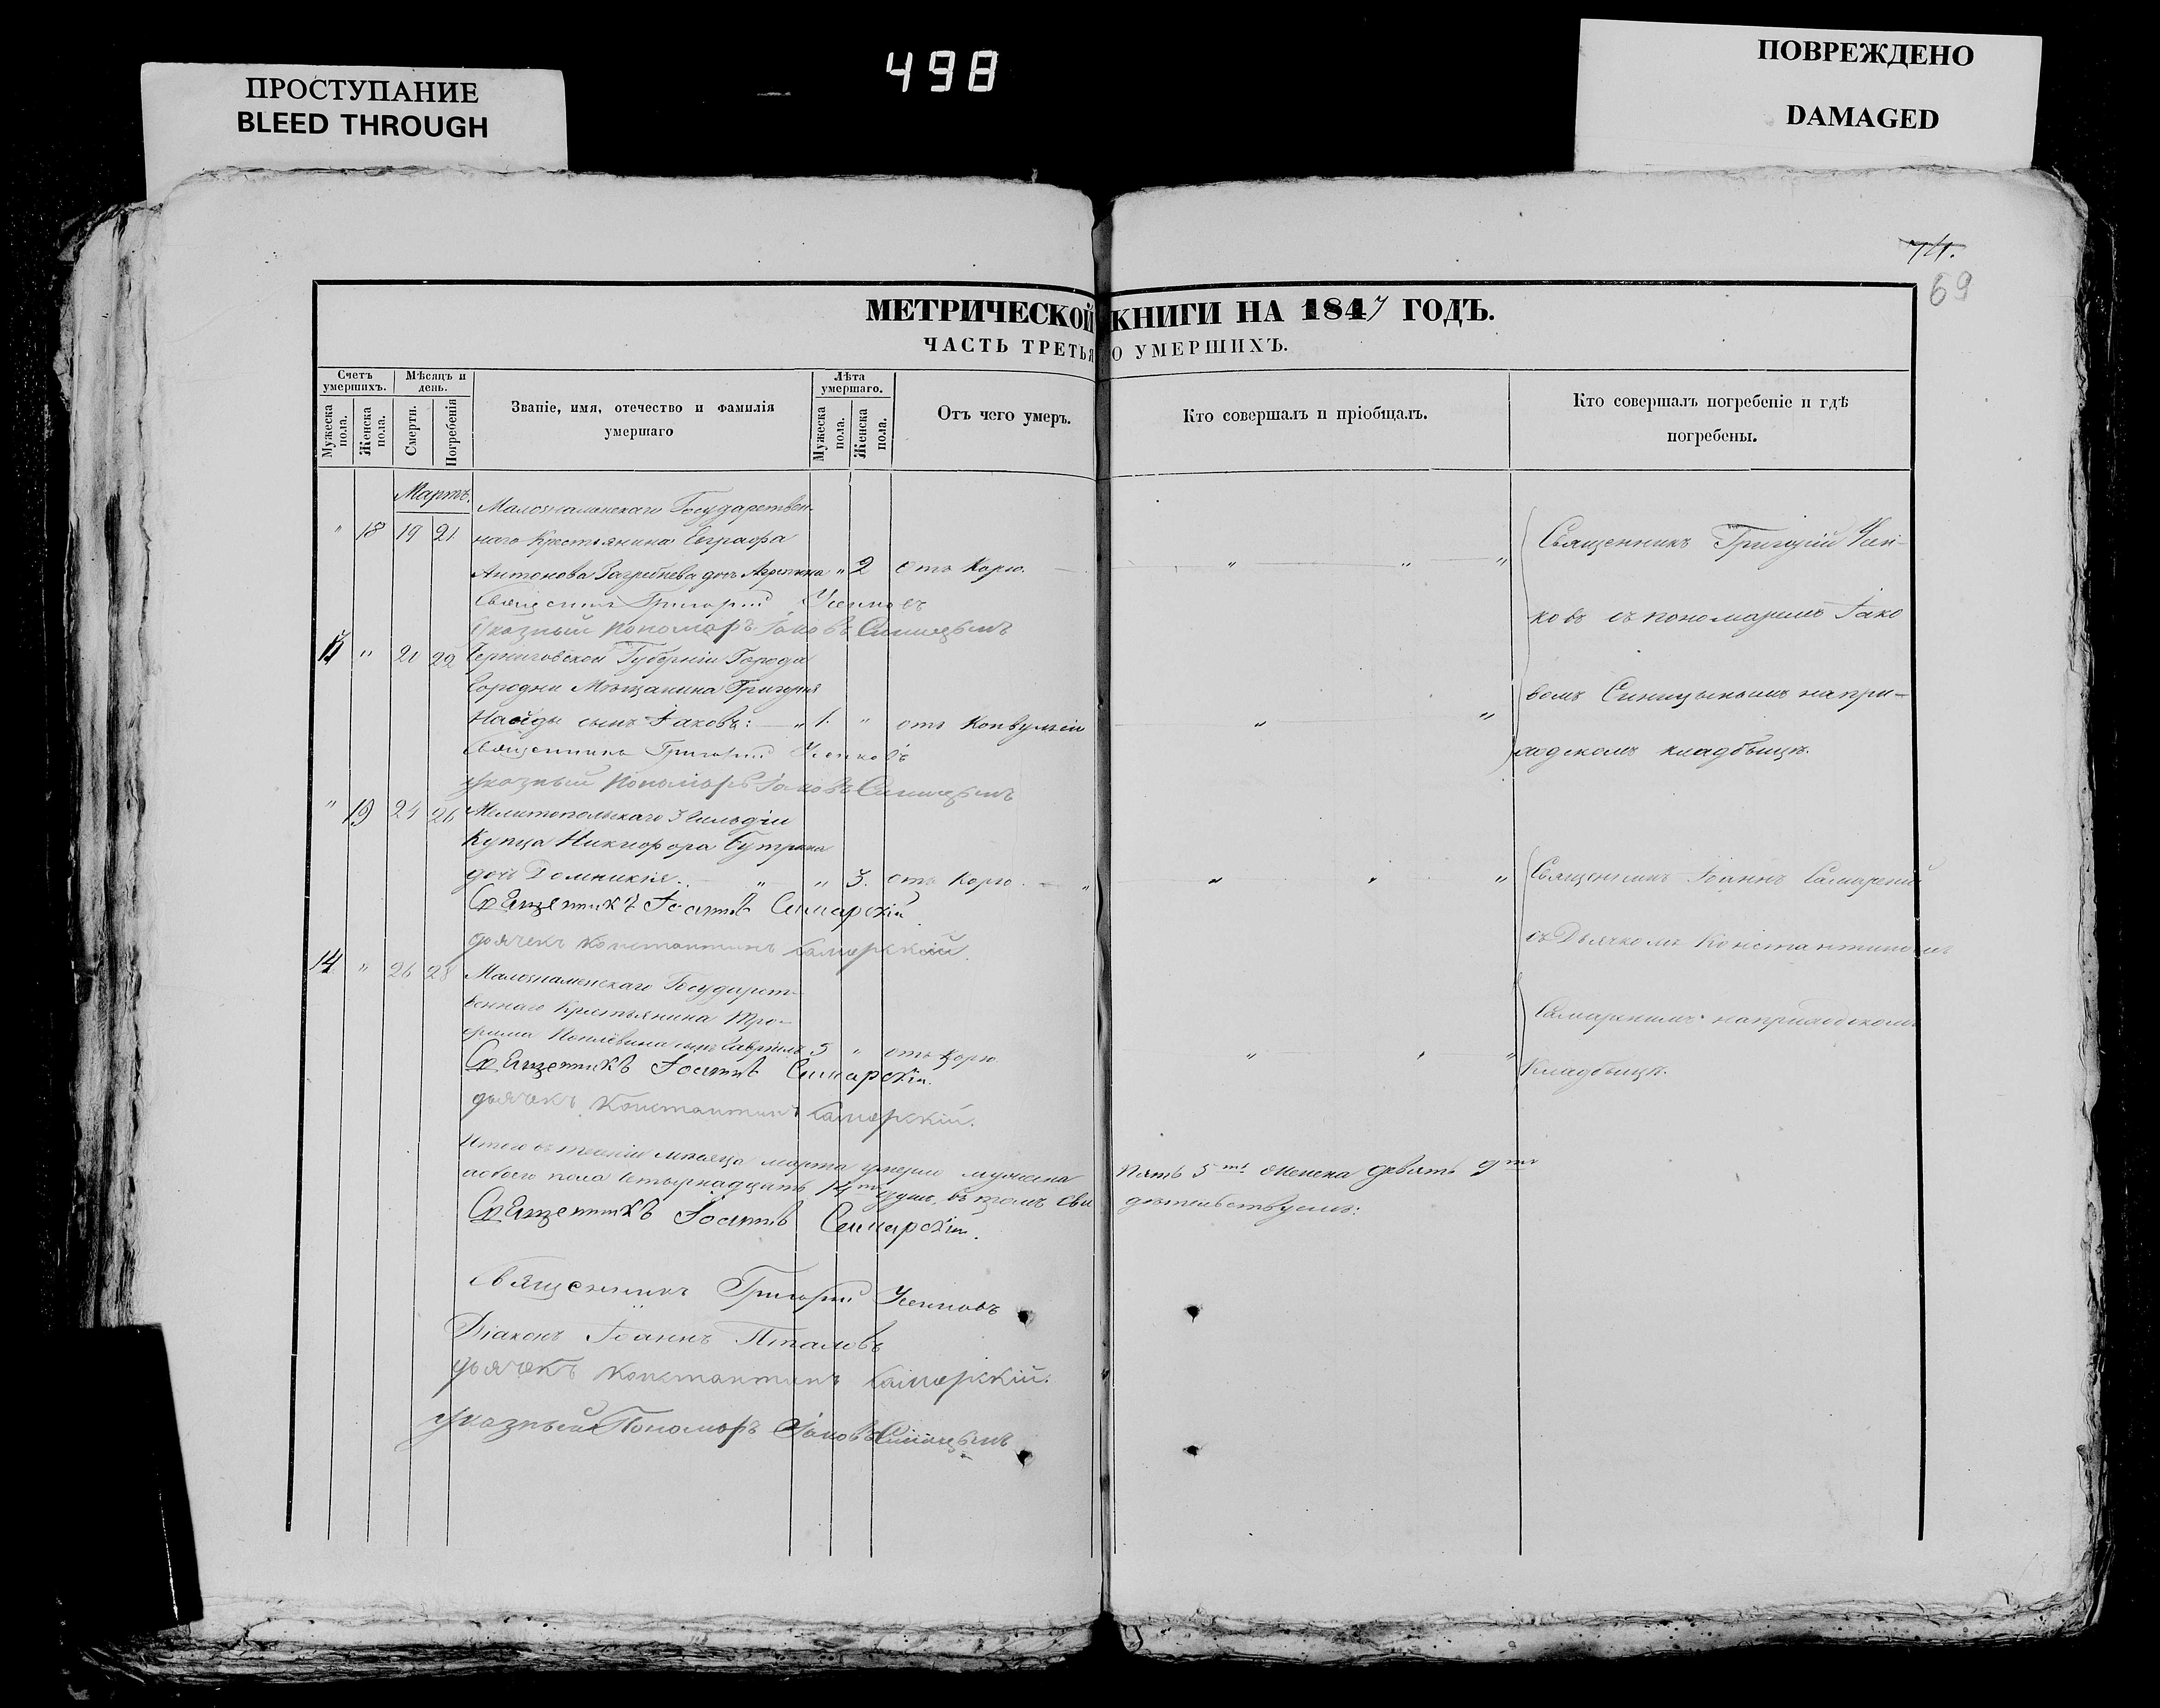 498
ПРОСТУПАНИЕ
BLEED THROUGH
ПОВРЕЖДЕНО
DAMAGED
74.
69
МЕТРИЧЕСКОЙ КНИГИ НА 1847 ГОДЪ.
ЧАСТЬ ТРЕТЬЯ О УМЕРШИХЪ.
Счетъ умершихъ.
Мужеска пола.
Женска пола.
Мѣсяцъ и день.
Смерти.
Погребенія
Званіе, имя, отечество и фамилія
умершаго
Лѣта умершаго.
Мужеска пола.
Женска пола.
Отъ чего умеръ.
Кто совершалъ и пріобщалъ.
Кто совершалъ погребеніе и гдѣ
погребены.
Мартъ.
Малознаменскаго Государствен-
" 18 19 21 наго Крестьянина Евграфа
Антонова дочь " 2 отъ Корю.
Священникъ Григорій
Указный Пономарь Іаковъ Синицынъ
Священникъ Григорій
ковъ съ пономаремъ Іако
вомъ Синицынымъ на при-
ходскомъ кладбыщѣ.
" 21 22 Черниговской Губерніи Города
Городни Мѣщанина Григорія
сынъ Іаковъ: 1. " отъ Конвульсіи
Священникъ Григорій
Указный Пономарь Іаковъ Синицынъ
" 19 24 26 Мелитопольскаго 3 Гильдіи
Купца Никифора
дочь Домникія. " 3. отъ Корю.
Священникъ Іоаннъ Самарскій
дьячекъ Константинъ Самарскій.
Священникъ Іоаннъ Самарскій
съ Дьячкомъ Константиномъ
Самарскимъ на приходскомъ
Кладбыщѣ.
14 " 26 28 Малознаменскаго Государст-
веннаго Крестьянина Тро-
фима сынъ Гавріилъ 5 " отъ Корю
Священникъ Іоаннъ Самарскій.
дьячекъ Константинъ Самарскій.
Итого въ теченіи мѣсяца марта умерло мужеска пять 5 ть женска девять 9 ть
а обоего пола четырнадцать 14 ть душъ, въ томъ сви дѣтельствуемъ:
Священникъ Іоаннъ Самарскій.
Священникъ Григорій
Діаконъ Іоаннъ
дьячекъ Константинъ Самарскій.
Указный Пономарь Іаковъ Синицынъ